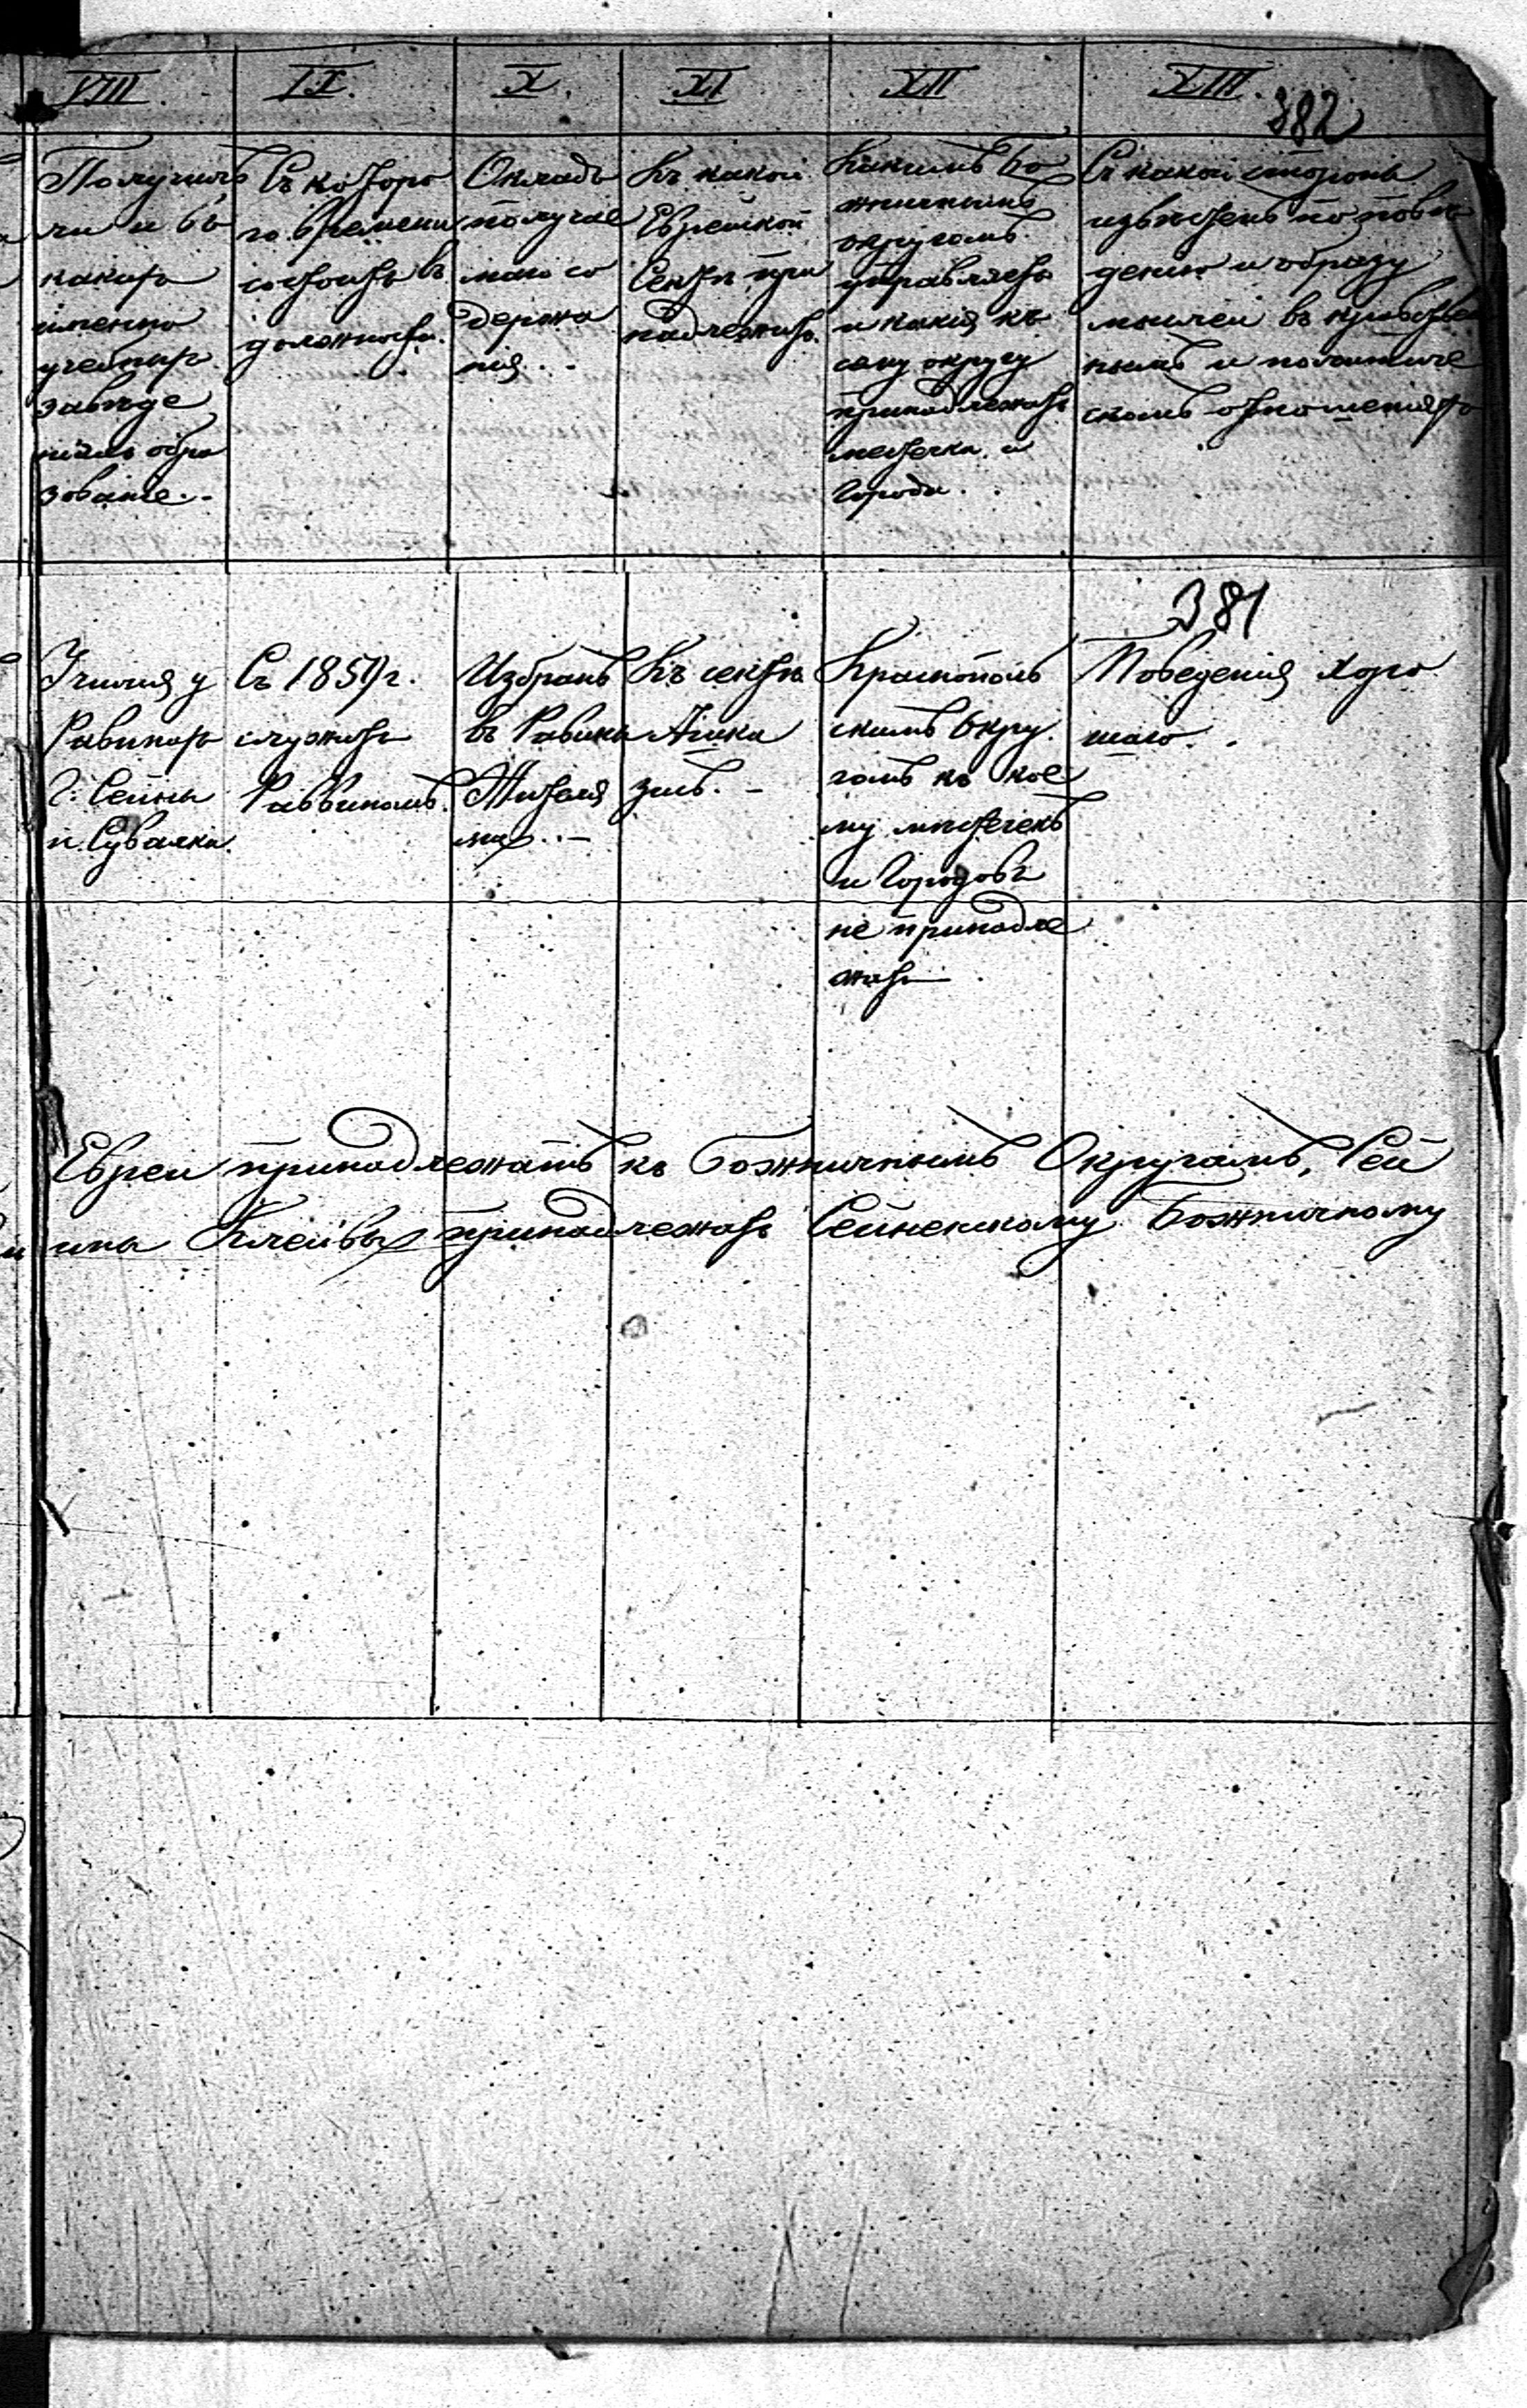 VIII.
IX.
X.
XI
XII
XIII.
382
Получилъ
ли и въ
какихъ
именно
учебныхъ
заведе
ніяхъ обра
зованіе.
Съ которо
го времени
состоитъ въ
должности.
Окладъ
получае
маго со
держа
нія.
Къ какой
Еврейской
Сектѣ при
надлежитъ.
Какимъ Бо
жничнымъ
округомъ
управляетъ
и какія къ
сему округу
принадлежатъ
местечка и
города.
Съ какой стороны
извѣстенъ по пове
денію и образу
мыслей въ нравствен
нымъ и политиче
скомъ отношеніяхъ
381
Учился у
Равиновъ
г: Сейны
и Сувалки.
Съ 1859 г.
служитъ
Раввиномъ.
Избранъ
въ Равины
Жителя
ми.
Къ сектѣ
Ашка
зимъ.
Краснополь
скимъ Окру
гомъ къ кое
му местечекъ
и Городовъ
не принадле
житъ
Поведенія хоро
шаго.
Евреи принадлежатъ къ Божничнымъ Округамъ, Сей
ины Клейвы принадлежатъ Сейненскому Божничному